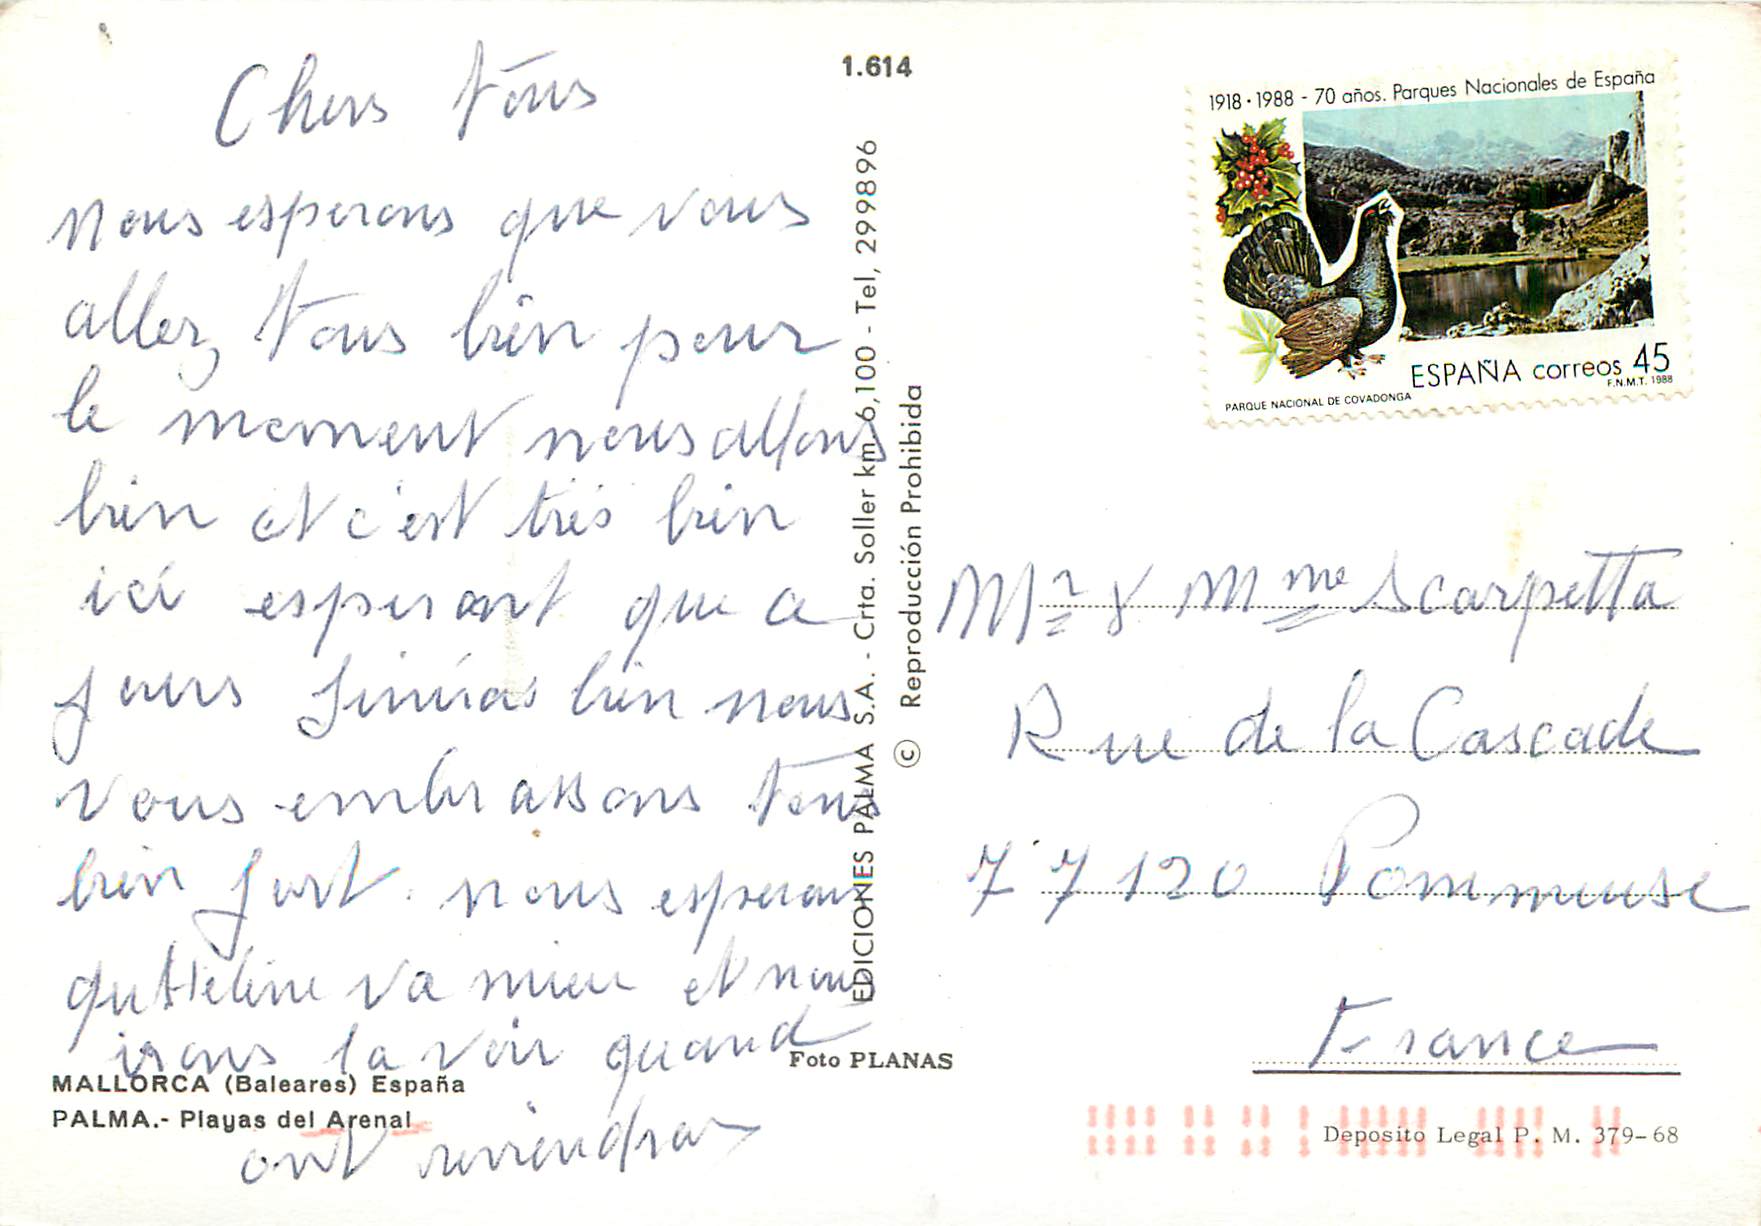 Chers tous
nous esperons que vous
allez tous bien pour
le moment nous allons
bien et c'est très bien
ici esperant que ce
jours finiras bien nous
vous embrassons tous
bien fort. nous esperons
qu'Heline va mieu et nous
irons la voir quand
ont reviendras
MALLORCA (Baleares) España
PALMA.- Playas del Arenal
1.614
EDICIONES PALMA S.A. - Crta. Soller km 6,100 - Tel, 299896
© Reproducción Prohibida
Foto PLANAS
1918 · 1988 - 70 años. Parques Nacionales de España
ESPAÑA correos 45
F.N.M.T. 1988
PARQUE NACIONAL DE COVADONGA
Mr & Mme Scarpetta
Rue de la Cascade
77120 Pommeuse
France
Deposito Legal P. M. 379-68